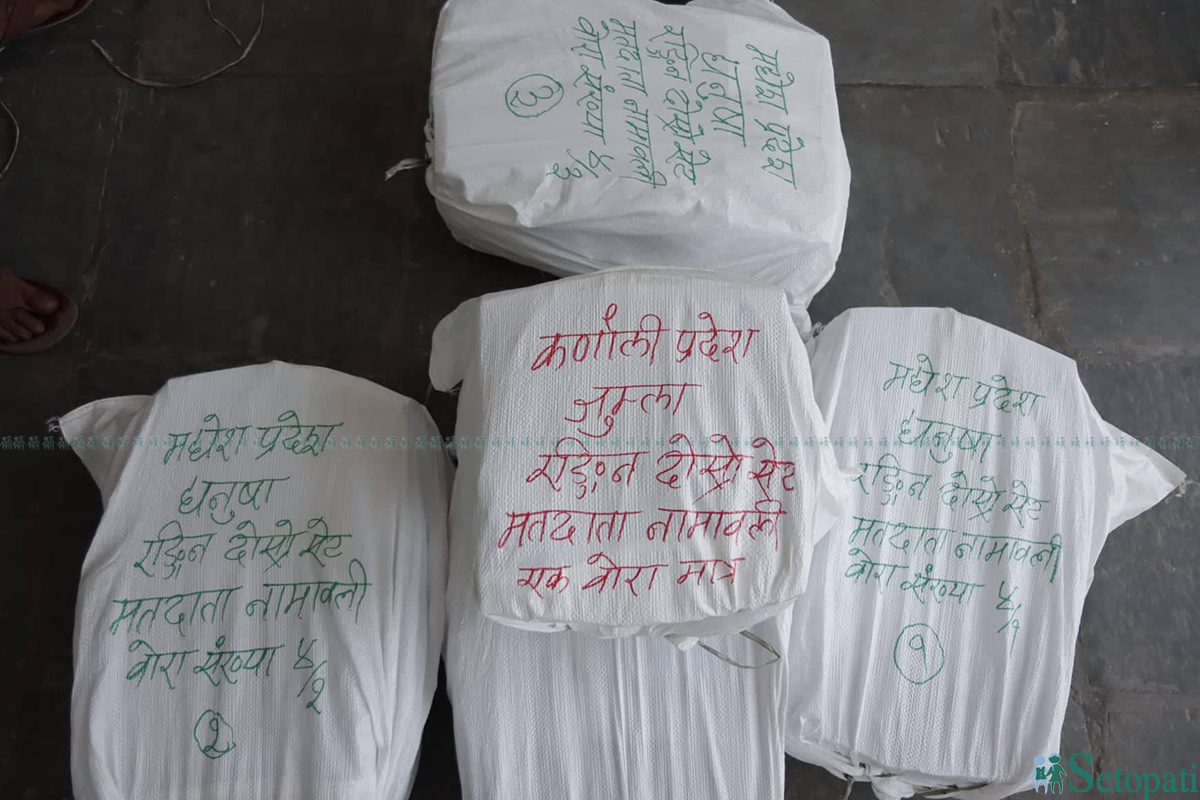 मधेश प्रदेश
धनुषा
रङ्गिन दोस्रो सेट
मतदाता नामावली
वोरा संख्या ४/३
३
कर्णाली प्रदेश
जुम्ला
रङ्गिन दोस्रो सेट
मतदाता नामावली
एक वोरा मात्र
मधेश प्रदेश
धनुषा
रङ्गिन दोस्रो सेट
मतदाता नामावली
वोरा संख्या ४/२
२
मधेश प्रदेश
धनुषा
रङ्गिन दोस्रो सेट
मतदाता नामावली
वोरा संख्या ४/१
१
Setopati